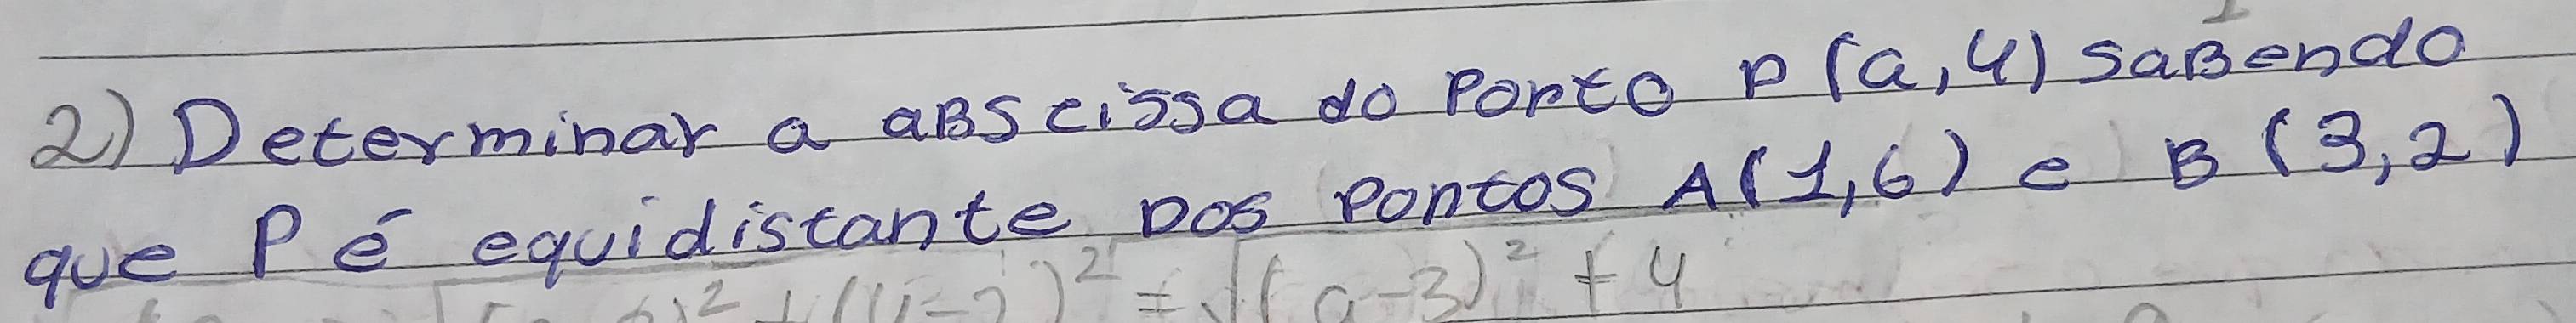 2) Determinar a aBscissa do Ponto P (a,4) saBendo
que P é equidistante Dos Pontos A(1,6) e B (3,2)
)² + (4-2)² = √(a-3)² + 4